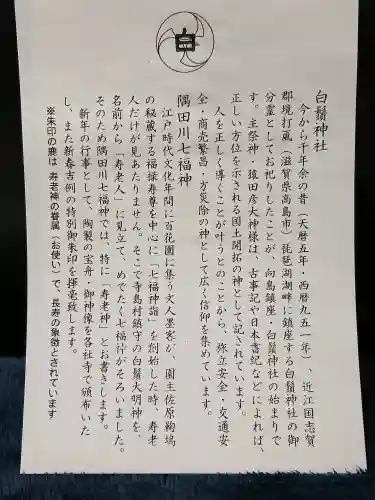 白
白鬚神社
今から千年余の昔(天暦五年・西暦九五一年) 近江国志賀
郡境打颪(滋賀県高島市)琵琶湖湖畔に鎮座する白鬚神社の御
分霊としてお祀りしたことが、向島鎮座・白鬚神社の始まりで
す。主祭神・猿田彦大神様は、古事記や日本書紀などによれば、
正しい方位を示される国土開拓の神として記されています。
人を正しく導くことが叶うとのことから、旅立安全・交通安
全・商売繁昌・方災除の神として広く信仰を集めています。
隅田川七福神
江戸時代文化年間に百花園に集う文人墨客が、園主佐原鞠塢
の秘蔵する福禄寿尊を中心に「七福神詣」を創始した時、寿老
人だけが見あたりません。そこで寺島村鎮守の白鬚大明神を、
名前から「寿老人」に見立て、めでたく七福神がそろいました。
そのため隅田川七福神では、特に「寿老神」とお書きします。
新年の行事として、陶製の宝舟・御神像を各社寺で頒布いた
し、また新春吉例の特別御朱印を揮毫致します。
※朱印の鹿は 寿老神の眷属(お使い)で、長寿の象徴とされています